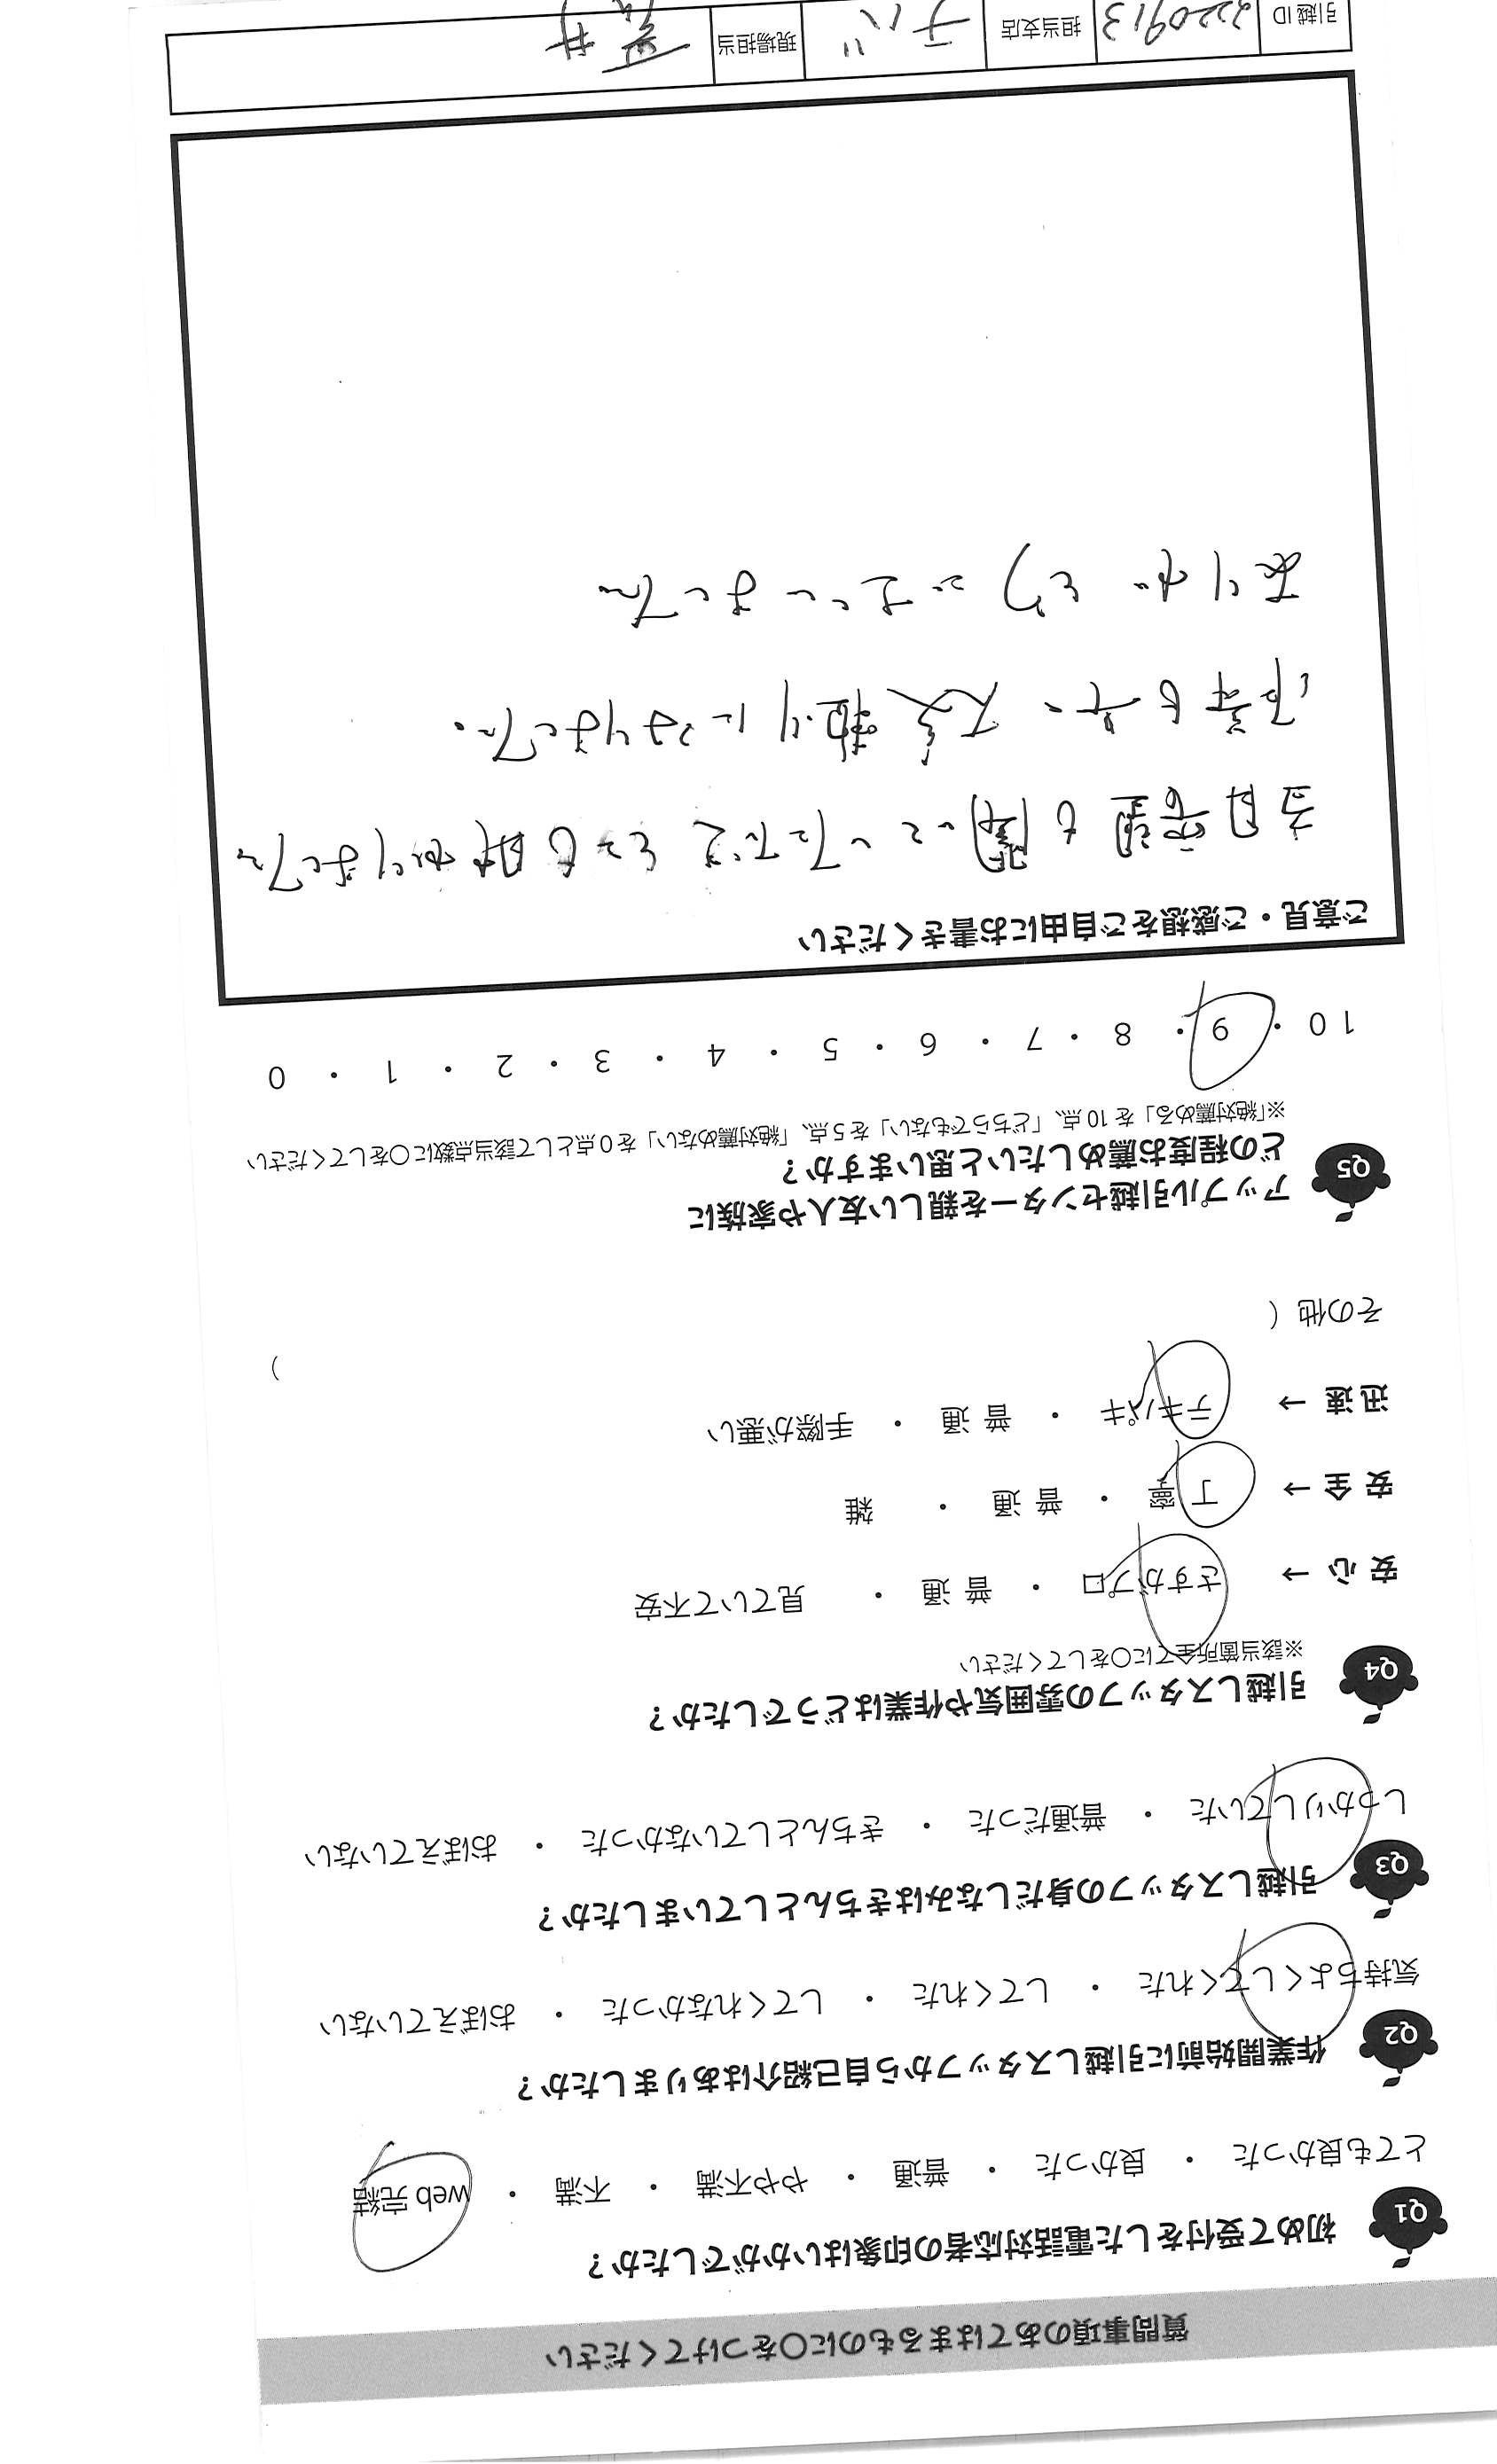 質問事項のあてはまるものに○をつけてください
Q1 初めて受付をした電話対応者の印象はいかがでしたか？
とても良かった ・ 良かった ・ 普通 ・ やや不満 ・ 不満 ・ web 完結
Q2 作業開始前に引越しスタッフから自己紹介はありましたか？
気持ちよくしてくれた ・ してくれた ・ してくれなかった ・ おぼえていない
Q3 引越しスタッフの身だしなみはきちんとしていましたか？
しっかりしていた ・ 普通だった ・ きちんとしていなかった ・ おぼえていない
Q4 引越しスタッフの雰囲気や作業はどうでしたか？
※該当箇所全てに○をしてください
安心 → さすがプロ ・ 普通 ・ 見ていて不安
安全 → 丁寧 ・ 普通 ・ 雑
迅速 → テキパキ ・ 普通 ・ 手際が悪い
その他 （ ）
Q5 アップル引越センターを親しい友人や家族に
どの程度お薦めしたいと思いますか？
※「絶対薦める」を10点、「どちらでもない」を5点、「絶対薦めない」を0点として該当点数に○をしてください
10 ・ 9 ・ 8 ・ 7 ・ 6 ・ 5 ・ 4 ・ 3 ・ 2 ・ 1 ・ 0
ご意見・ご感想をご自由にお書きください
当日希望も聞いていただきとても助かりました
作業も早く、大変助かりました。
ありがとうございました
引越ID 2220913 担当支店 チバ 現場担当